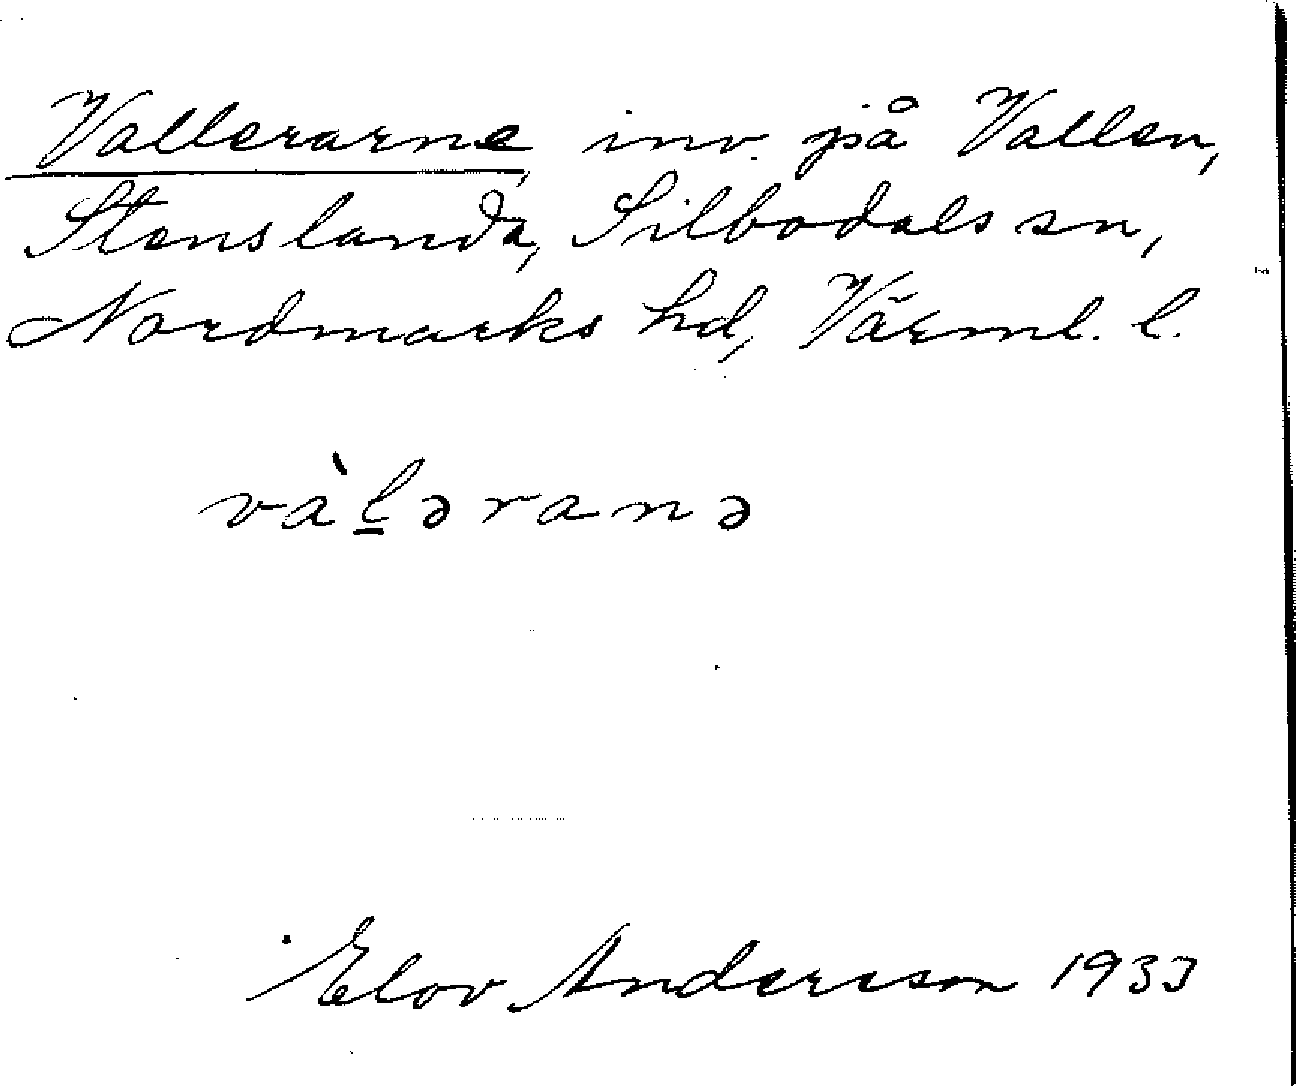 Vallerarne, inv. på Vallen,
Stenslanda, Silbodals sn,
Nordmarks hd, Värml. l.
vàl̲əranə
Elov Andersson 1933